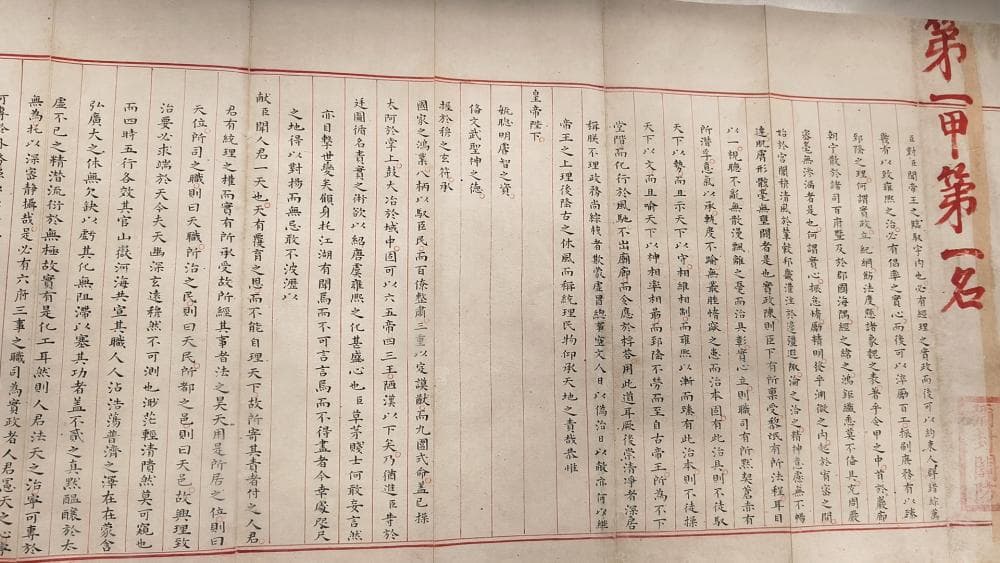 第一甲第一名
臣對臣聞帝王之臨馭宇內也必有經理之實政而後可以約束人群錯綜萬
幾有以致雍熙之治必有倡率之實心而後可以淬勵百工振刷庶務有以臻
郅隆之理何謂實政立紀綱飭法度懸諸象魏之表著乎令甲之中首於巖廊
朝宁散於諸司百府暨及於郡國海隅經之緯之鴻鉅纖悉莫不備具充周嚴
密毫無滲漏者是也何謂實心振怠惰勵精明發乎淵微之內起於宥密之間
始於宮闈穆清風於輦轂邦畿灌注於邊疆遐陬淪之洽之精神意慮無不暢
達肌膚形骸毫無壅閼者是也實政陳則臣下有所稟受黎氓有所法程耳目
以一視聽不亂無散漫飄離之憂而治具彰實心立則職司有所默契蒼赤有
所潛孚意氣以承軌度不踰無叢脞惰窳之患而治本固有此治具則不徒馭
天下以勢而且示天下以守相維相制而雍熙以漸而臻有此治本則不徒操
天下以文而且喻天下以神相率相勖而郅隆不勞而至自古帝王所為不下
堂階而化行於風馳不出廟廊而令應於桴答用此道耳厥後崇清淨者深居
稱朕不理政務尚綜核者欺蒙虛冒總事空文人日以偽治日以敝亦何以繼
帝王之上理後隆古之休風而稱統理民物仰承天地之責哉恭惟
皇帝陛下
毓聰明睿智之資
備文武聖神之德
握於穆之玄符承
國家之鴻業八柄以馭臣民而百僚整肅三重以定謨猷而九圍式命蓋已操
太阿於掌上鼓大冶於域中固可以六五帝四三王陋漢以下矣乃猶進臣等於
廷圖循名責實之術欲以紹唐虞雍熙之化甚盛心也臣草茅賤士何敢妄言然
亦目擊世變矣顧身托江湖有聞焉而不可言言焉而不得盡者今幸處咫尺
之地得以對揚而無忌敢不披瀝以
獻臣聞人君一天也天有覆育之恩而不能自理天下故所寄其責者付之人君
君有統理之權而實有所承受故所經其事者法之昊天用是所居之位則曰
天位所司之職則曰天職所治之民則曰天民所都之邑則曰天邑故興理致
治要必求端於天今夫天幽深玄遠穆然不可測也渺茫輕清隤然莫可窺也
而四時五行各效其官山嶽河海共宣其職人人沾浩蕩普濟之澤在在蒙含
弘廣大之休無欠缺以虧其化無阻滯以塞其功者蓋不貳之真默醞釀於太
虛不已之精潛流衍於無極故實有是化工耳然則人君法天之治寧可專於
無為托以深密靜攝哉是必有六府三事之職司為實政者人君憲天之心寧